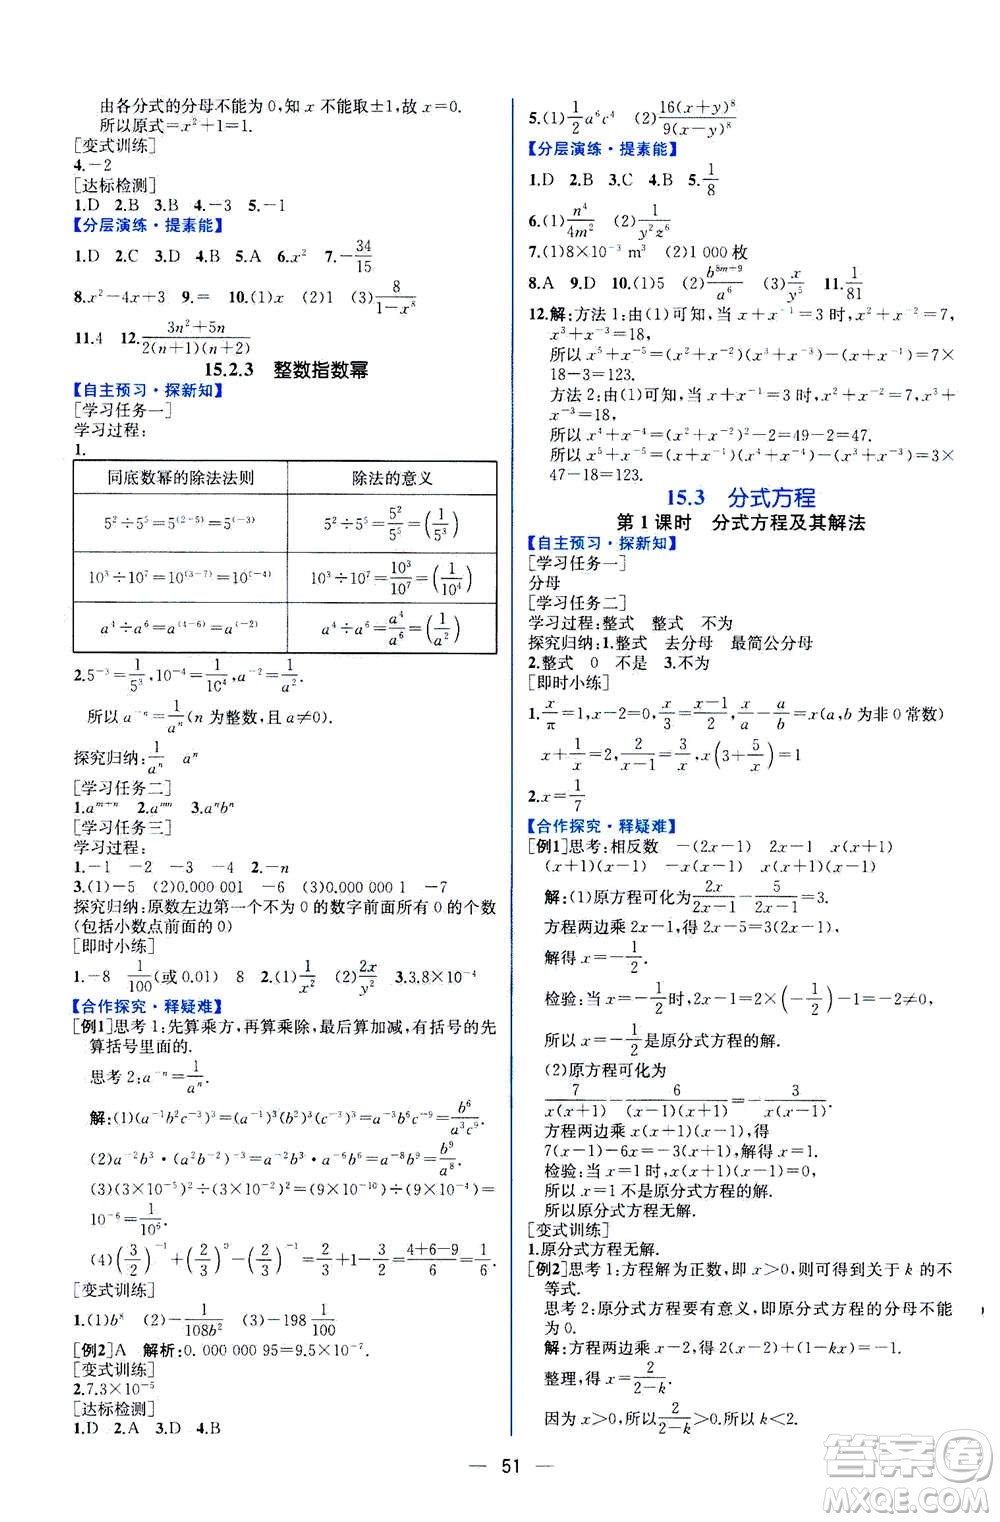 由各分式的分母不能为0,知x不能取±1,故x=0.
所以原式=x²+1=1.
[变式训练]
4.-2
[达标检测]
1.D 2.B 3.B 4.-3 5.-1
【分层演练·提素能】
1.D 2.C 3.D 4.B 5.A 6.x² 7.-34/15
8.x²-4x+3 9.= 10.(1)x (2)1 (3)8/(1-x⁸)
11.4 12.(3n²+5n)/(2(n+1)(n+2))
15.2.3 整数指数幂
【自主预习·探新知】
[学习任务一]
学习过程:
1.
同底数幂的除法法则 除法的意义
5²÷5⁵=5^(2-5)=5^(-3) 5²÷5⁵=5²/5⁵=(1/5³)
10³÷10⁷=10^(3-7)=10^(-4) 10³÷10⁷=10³/10⁷=(1/10⁴)
a⁴÷a⁶=a^(4-6)=a^(-2) a⁴÷a⁶=a⁴/a⁶=(1/a²)
2.5⁻³=1/5³,10⁻⁴=1/10⁴,a⁻²=1/a².
所以a⁻ⁿ=1/aⁿ(n为整数,且a≠0).
探究归纳:1/aⁿ aⁿ
[学习任务二]
1.a^(m+n) 2.a^(mn) 3.aⁿbⁿ
[学习任务三]
学习过程:
1.-1 -2 -3 -4 2.-n
3.(1)-5 (2)0.000 001 -6 (3)1 -7
探究归纳:原数左边第一个不为0的数字前面所有0的个数
(包括小数点前面的0)
[即时小练]
1.-8 1/100(或0.01) 8 2.(1)1/x² (2)2x/y² 3.3.8×10⁻⁴
【合作探究·释疑难】
[例1]思考1:先算乘方,再算乘除,最后算加减,有括号的先
算括号里面的.
思考2:a⁻ⁿ=1/aⁿ.
解:(1)(a⁻¹b²c⁻³)³=(a⁻¹)³(b²)³(c⁻³)³=a⁻³b⁶c⁻⁹=b⁶/(a³c⁹).
(2)a⁻²b³·(a²b⁻²)⁻³=a⁻²b³·a⁻⁶b⁶=a⁻⁸b⁹=b⁹/a⁸.
(3)(3×10⁻⁵)²÷(3×10⁻²)²=(9×10⁻¹⁰)÷(9×10⁻⁴)=
10⁻⁶=1/10⁶.
(4)(3/2)⁻¹+(2/3)⁰-(2/3)⁻¹=2/3+1-3/2=(4+6-9)/6=1/6.
[变式训练]
1.(1)b⁸ (2)-1/(108b²) (3)-198 1/100
[例2]A 解析:0.000 000 95=9.5×10⁻⁷.
[变式训练]
2.7.3×10⁻⁵
[达标检测]
1.D 2.A 3.D 4.B
5.(1)1/2 a⁶c⁴ (2)16(x+y)⁸/(9(x-y)⁸)
【分层演练·提素能】
1.D 2.B 3.C 4.B 5.1/8
6.(1)n⁴/(4m²) (2)1/(y²z⁶)
7.(1)8×10⁻³ m³ (2)1 000枚
8.A 9.D 10.(1)5 (2)b^(8m+9)/a⁶ (3)x/y⁵ 11.1/81
12.解:方法1:由(1)可知,当x+x⁻¹=3时,x²+x⁻²=7,
x³+x⁻³=18,
所以x⁵+x⁻⁵=(x²+x⁻²)(x³+x⁻³)-(x+x⁻¹)=7×
18-3=123.
方法2:由(1)可知,当x+x⁻¹=3时,x²+x⁻²=7,x³+
x⁻³=18,
所以x⁴+x⁻⁴=(x²+x⁻²)²-2=49-2=47.
所以x⁵+x⁻⁵=(x+x⁻¹)(x⁴+x⁻⁴)-(x³+x⁻³)=3×
47-18=123.
15.3 分式方程
第1课时 分式方程及其解法
【自主预习·探新知】
[学习任务一]
分母
[学习任务二]
学习过程:整式 整式 不为
探究归纳:1.整式 去分母 最简公分母
2.整式 0 不是 3.不为
[即时小练]
1.x/π=1,x-2=0,x/3=(x-1)/2,x/a-a/b=x(a,b为非0常数)
x+1/x=2,x(3+5/x)=-1
2.x=1/7
【合作探究·释疑难】
[例1]思考:相反数 -(2x-1) 2x-1 x(x+1)
(x+1)(x-1) -x(x-1) x(x+1)(x-1)
解:(1)原方程可化为2x/(2x-1)-5/(2x-1)=3.
方程两边乘2x-1,得2x-5=3(2x-1),
解得x=-1/2.
检验:当x=-1/2时,2x-1=2×(-1/2)-1=-2≠0,
所以x=-1/2是原分式方程的解.
(2)原方程可化为
7/(x(x+1))-6/((x-1)(x+1))=-3/(x(x-1)).
方程两边乘x(x+1)(x-1),得
7(x-1)-6x=-3(x+1),解得x=1.
检验:当x=1时,x(x+1)(x-1)=0,
所以x=1不是原分式方程的解.
所以原分式方程无解.
[变式训练]
1.原分式方程无解.
[例2]思考1:方程解为正数,即x>0,可得到关于k的不
等式.
思考2:原分式方程要有意义,即原分式方程的分母不能
为0.
解:方程两边乘x-2,得2(x-2)+(1-kx)=-1.
整理,得x=2/(2-k).
因为x>0,所以2/(2-k)>0.所以k<2.
— 51 —
答案圈
MXQE.COM